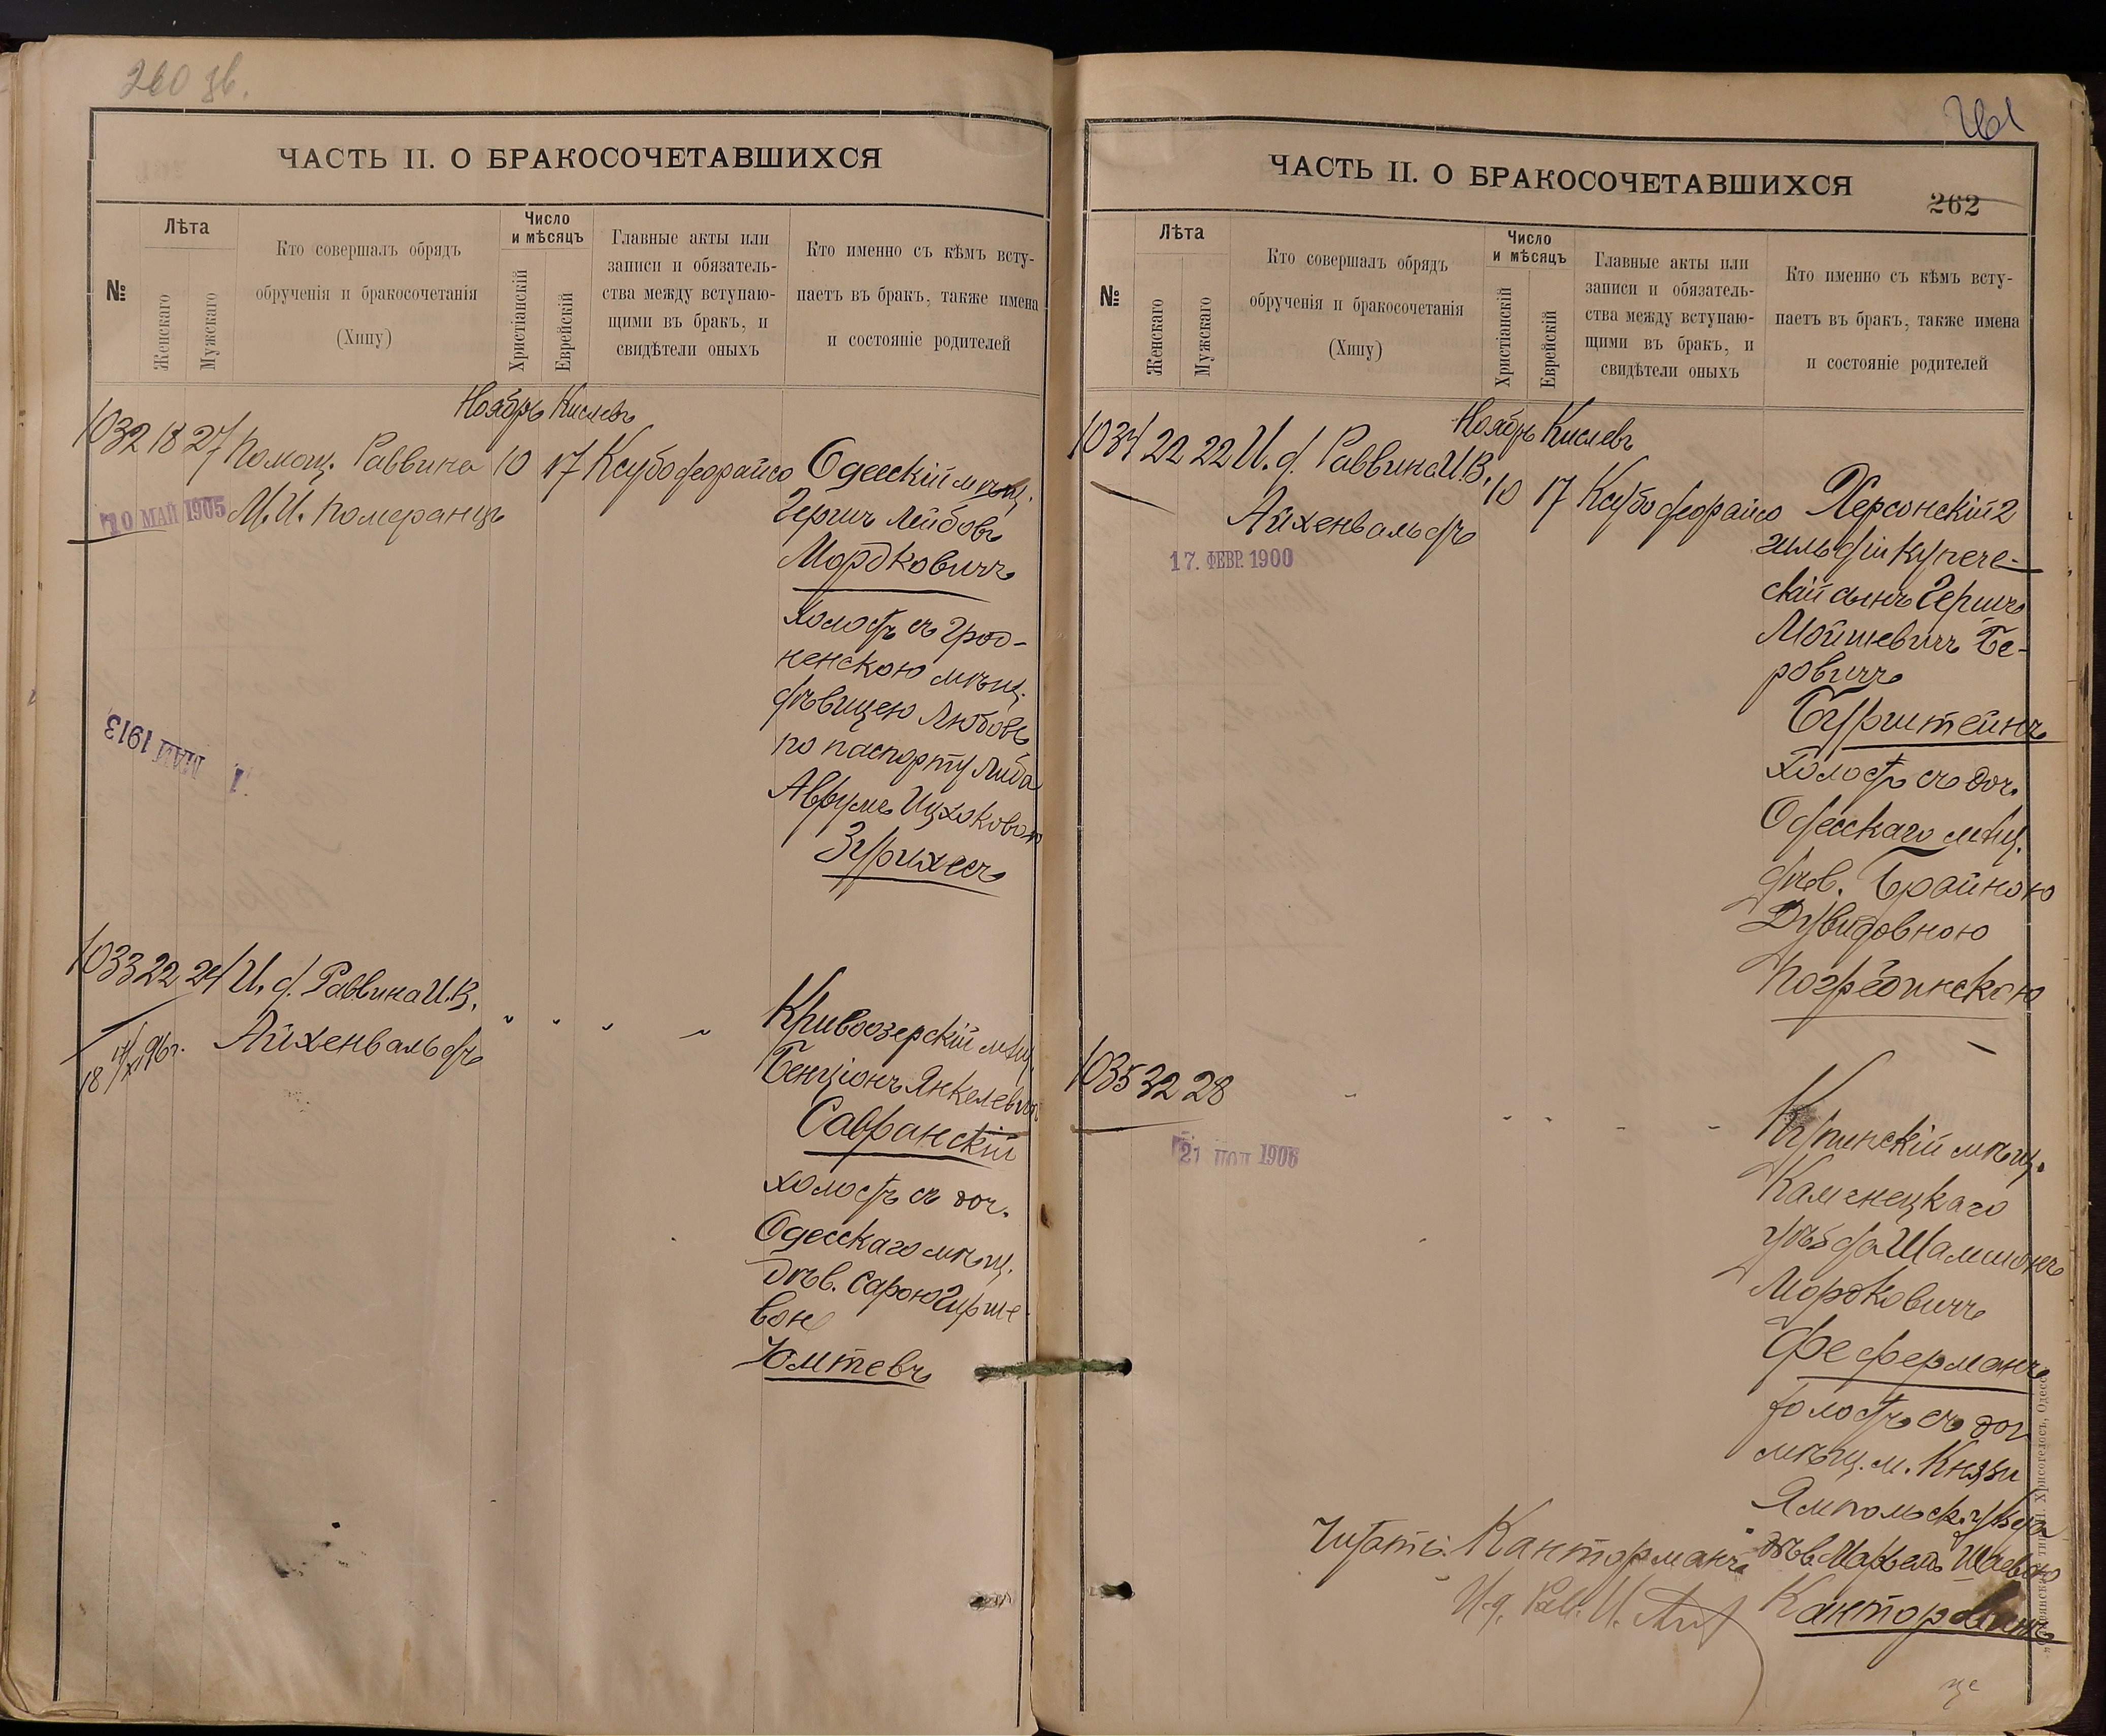 260 зв.
ЧАСТЬ II. О БРАКОСОЧЕТАВШИХСЯ
№
Лѣта
Женскаго
Мужскаго
Кто совершалъ обрядъ
обрученія и бракосочетанія
(Хипу)
Число
и мѣсяцъ
Христіанскій
Еврейскій
Главные акты или
записи и обязатель-
ства между вступаю-
щими въ бракъ, и
свидѣтели оныхъ
Кто именно съ кѣмъ всту-
паетъ въ бракъ, также имена
и состояніе родителей
Ноябрь Кислевъ
1032 18 27 Помощ. Раввина 10 17 Ксубо деорайсо Одесскій мѣщ.
10 МАЙ 1905 М. И. Померанцъ
Гершъ Лейбовъ
Мордковичъ
холостъ съ Грод-
ненскою мѣщ.
дѣвицею Любовь
по паспорту Либа
Аврумъ Ицхоковою
Зурихесъ
1 МАЙ 1913
1033 22 24 И. д. Раввина И. В. " " " " Кривоозерскій мѣщ.
Айхенвальдъ
Бенціонъ Янкелевъ
Савранскій
холостъ съ доч.
Одесскаго мѣщ.
дѣв. Сарою Гирше-
вой
Юмтевъ
18 17/XI 96 г.
261
ЧАСТЬ II. О БРАКОСОЧЕТАВШИХСЯ
262
№
Лѣта
Женскаго
Мужскаго
Кто совершалъ обрядъ
обрученія и бракосочетанія
(Хипу)
Число
и мѣсяцъ
Христіанскій
Еврейскій
Главные акты или
записи и обязатель-
ства между вступаю-
щими въ бракъ, и
свидѣтели оныхъ
Кто именно съ кѣмъ всту-
паетъ въ бракъ, также имена
и состояніе родителей
Ноябрь Кислевъ
1034 22 22 И. д. Раввина И. В. 10 17 Ксубо деорайсо Херсонскій 2
Айхенвальдъ
17. ФЕВР. 1900
гильдіи купече-
скій сынъ Гершъ
Мойшевичъ Бе-
ровичъ
Бурштейнъ
холостъ съ доч.
Одесскаго мѣщ.
дѣв. Брайною
Дувидовною
Погребинскою
1035 32 28 " " " " " Купинскій мѣщ.
21 1906
Каменецкаго
уѣзда Шамшонъ
Мордковичъ
Феферманъ
холостъ съ доч
мѣщ. м. Князи
Ямпольск. уѣзда
дѣв. Шаевою
Канторманъ
Читать: Канторманъ
И. д. Рав. И.